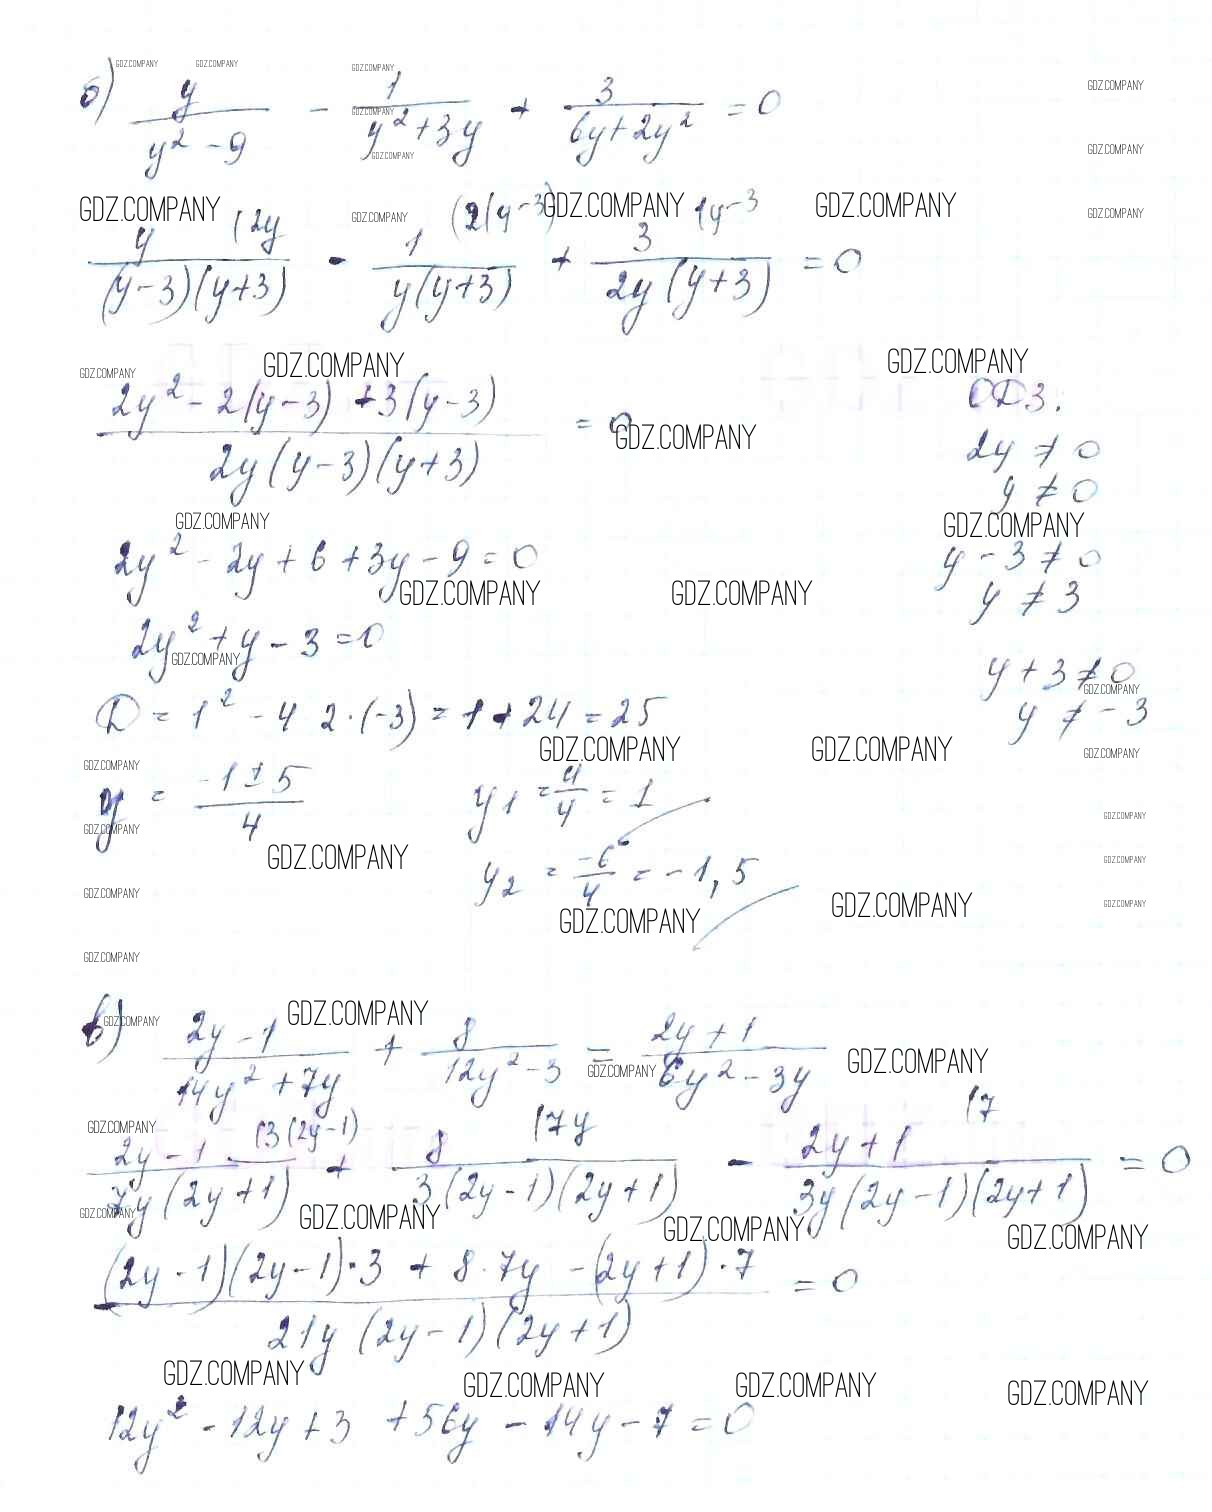 б) y/(y² - 9) - 1/(y² + 3y) + 3/(6y + 2y²) = 0
y(2y/((y - 3)(y + 3)) - 1(2(y - 3)/(y(y + 3)) + 3(y - 3/(2y(y + 3)) = 0
(2y² - 2(y - 3) + 3(y - 3))/(2y(y - 3)(y + 3)) = 0
ОДЗ:
2y ≠ 0
y ≠ 0
y - 3 ≠ 0
y ≠ 3
y + 3 ≠ 0
y ≠ -3
2y² - 2y + 6 + 3y - 9 = 0
2y² + y - 3 = 0
D = 1² - 4 2·(-3) = 1 + 24 = 25
y = (-1 ± 5)/4
y1 = 4/4 = 1
y2 = -6/4 = -1,5
в) (2y - 1)/(14y² + 7y) + 8/(12y² - 3) = (2y + 1)/(6y² - 3y)
(2y - 1 (3(2y - 1))/(7y(2y + 1)) + 8 (7y/(3(2y - 1)(2y + 1)) - (2y + 1 (7)/(3y(2y - 1)(2y + 1)) = 0
((2y - 1)(2y - 1)·3 + 8·7y - (2y + 1)·7)/(21y(2y - 1)(2y + 1)) = 0
12y² - 12y + 3 + 56y - 14y - 7 = 0
GDZ.COMPANY